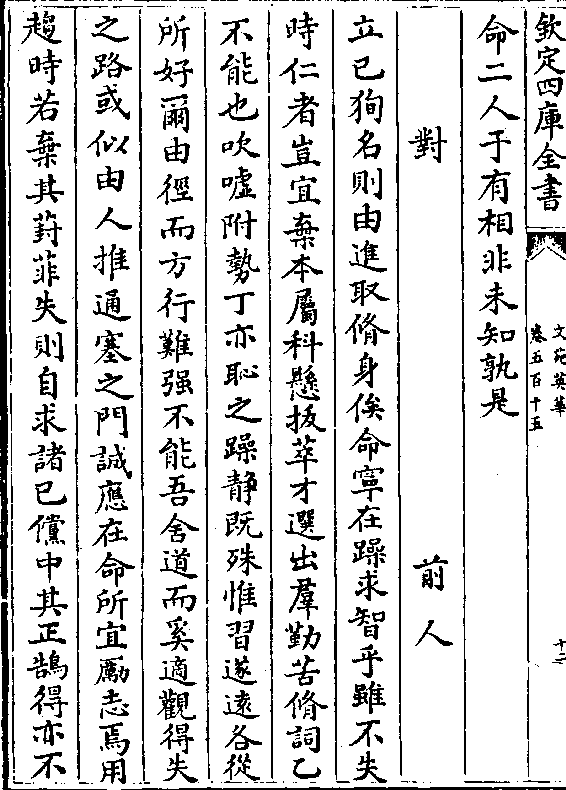 欽定四庫全書
文苑英華
卷五百十五
十二
命二人于有相非未知孰是
對
前人
立已狥名則由進取脩身俟命寧在躁求智乎雖不失
時仁者豈宜棄本屬科懸拔萃才選出羣勤苦脩詞乙
不能也吹噓附勢丁亦恥之躁靜既殊惟習遂遠各從
所好爾由徑而方行難强不能吾舍道而奚適觀得失
之路或似由人推通塞之門誠應在命所宜勵志焉用
趨時若棄其葑菲失則自求諸已儻中其正鵠得亦不